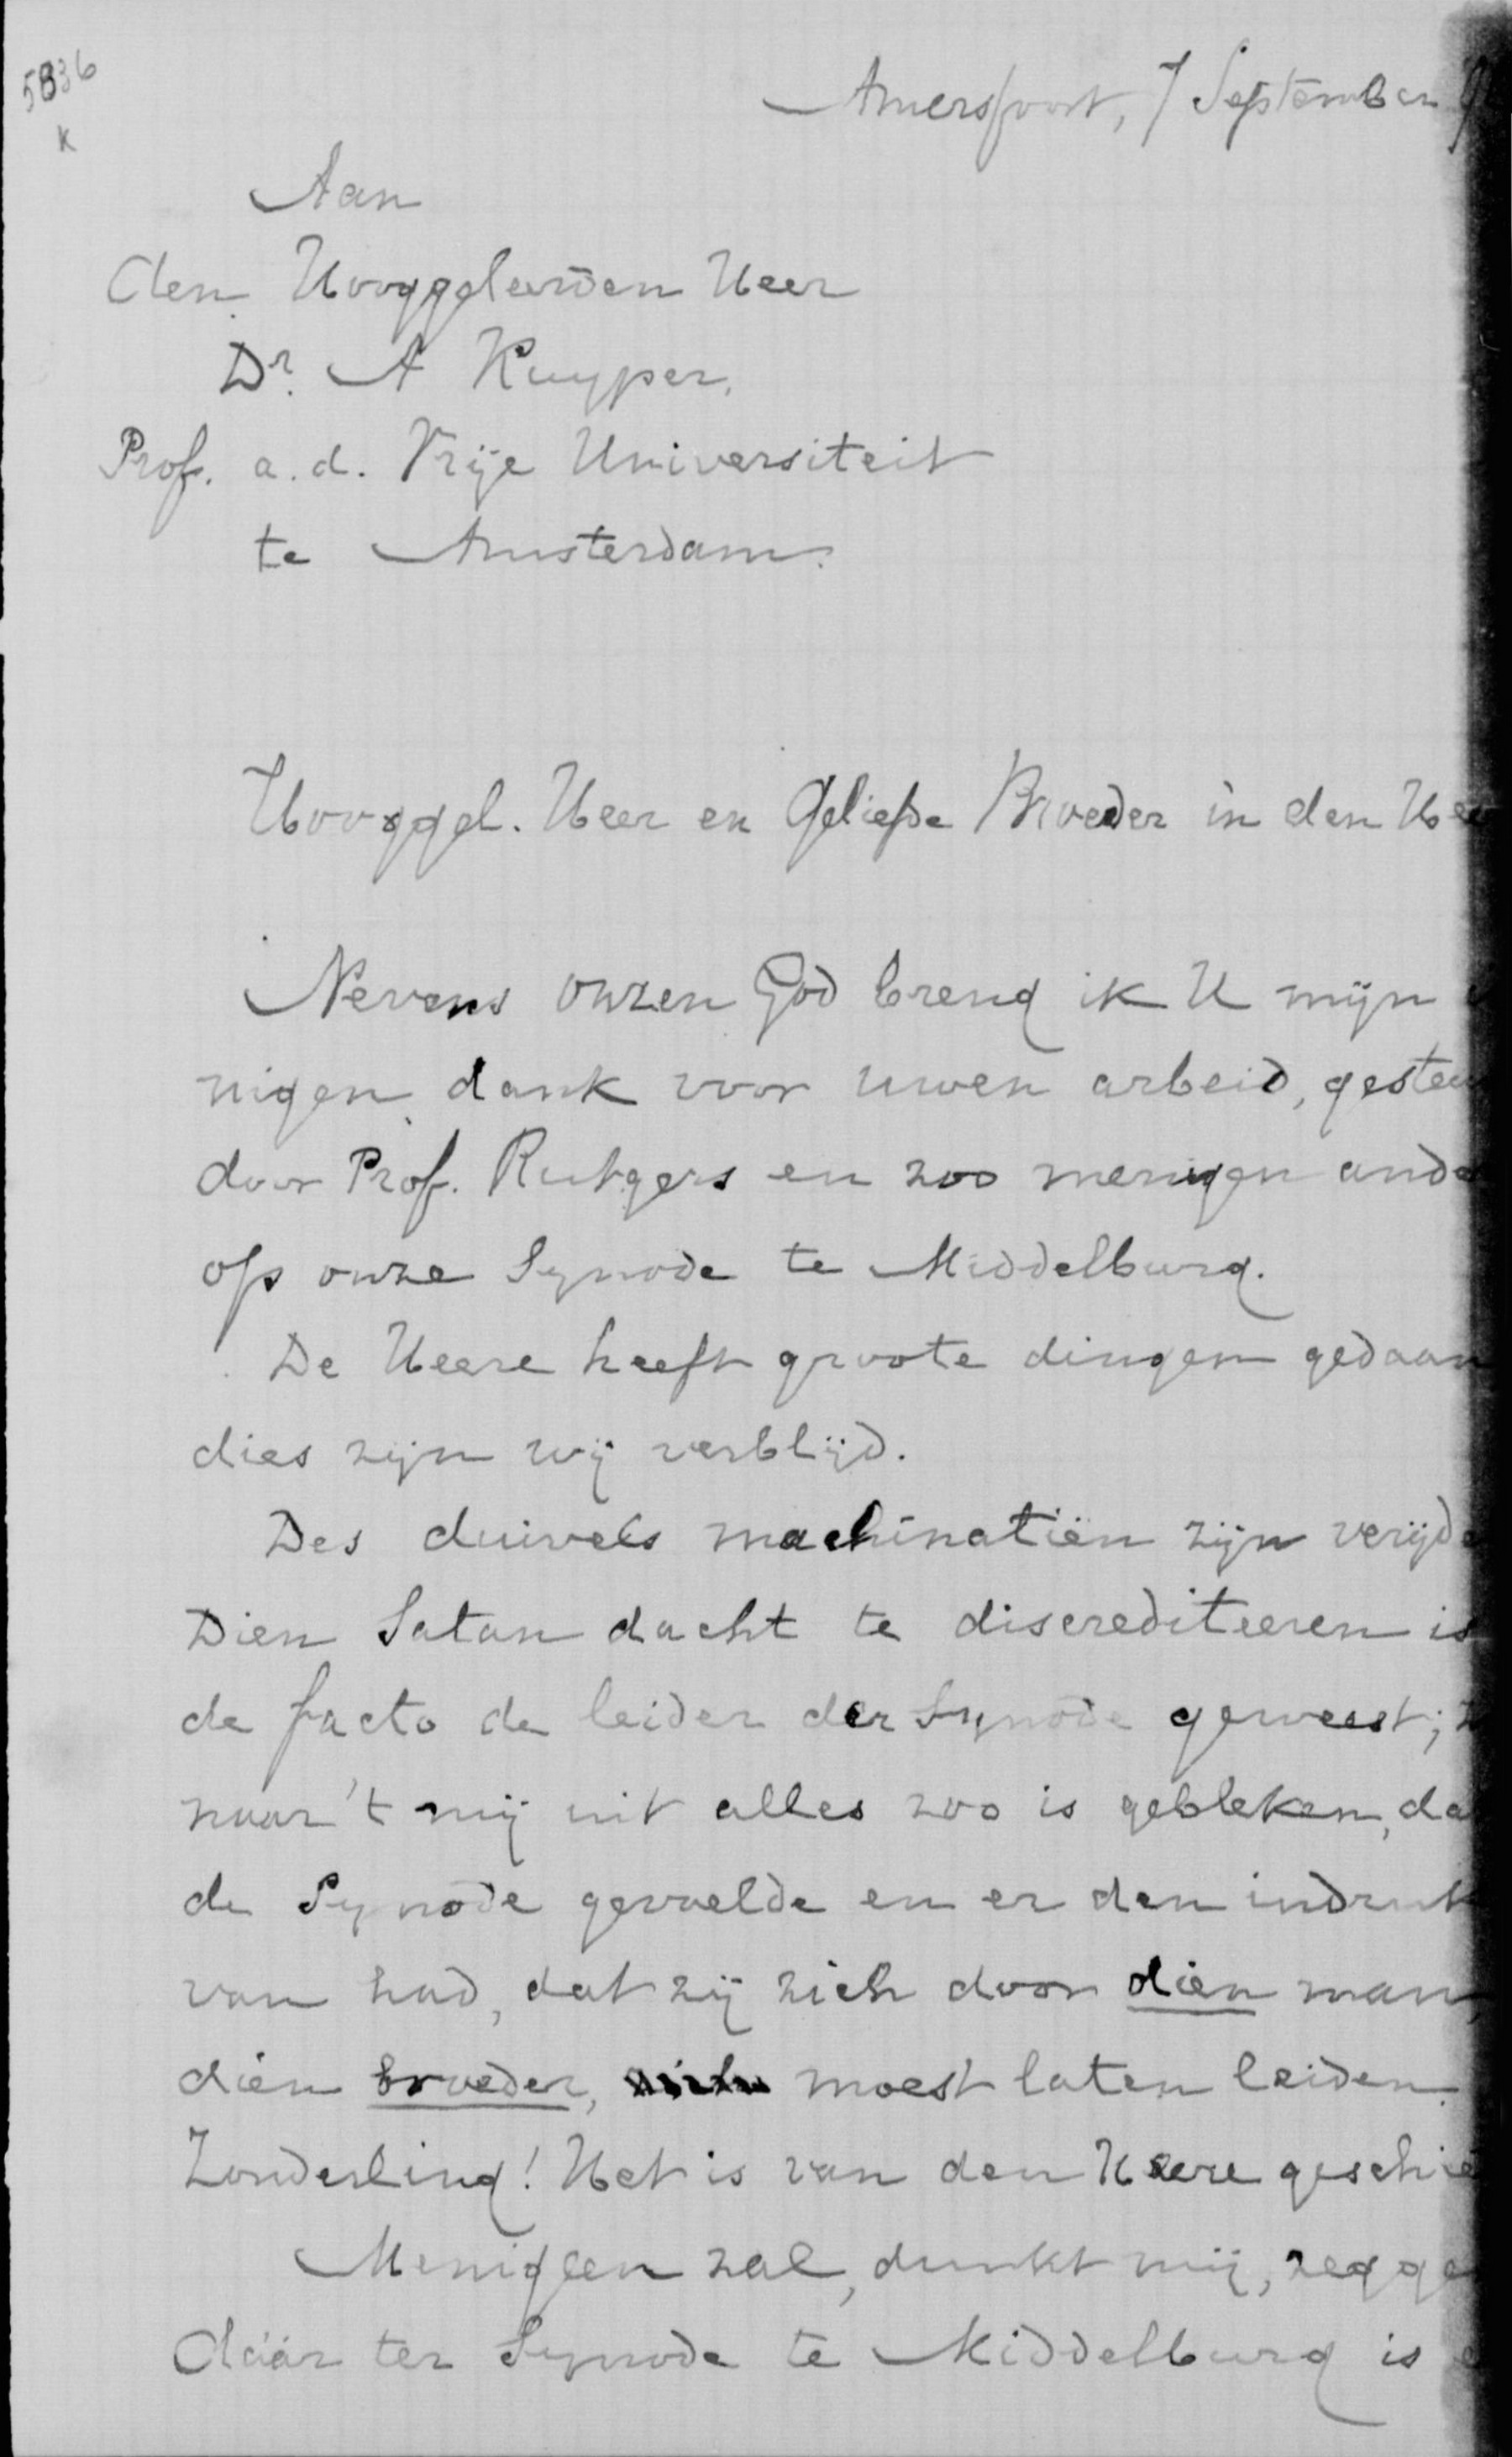 5836
K
Amersfoort, 7 September 9
Aan
den Hooggeleerden Heer
Dr. A Kuyper,
Prof. a.d. Vrije Universiteit
te Amsterdam.
Hooggel. Heer en Geliefde Broeder in den Hee
Nevens onzen God breng ik U mijn
nigen dank voor uwen arbeid, gesteu
door Prof. Rutgers en zoo menigen ande
op onze Synode te Middelburg.
De Heere heeft groote dingen gedaan
dies zijn wij verblijd.
Des duivels machinatiën zijn verijde
Dien Satan dacht te discrediteeren is
de facto de leider der Synode geweest; z
naar 't mij uit alles zoo is gebleken, da
de Synode gevoelde en er den indruk
van had, dat zij zich door dien man,
dien broeder, moest laten leiden.
Zonderling! Het is van den Heere geschie
Menigeen zal, dunkt mij, zegge
dáár ter Synode te Middelburg is e